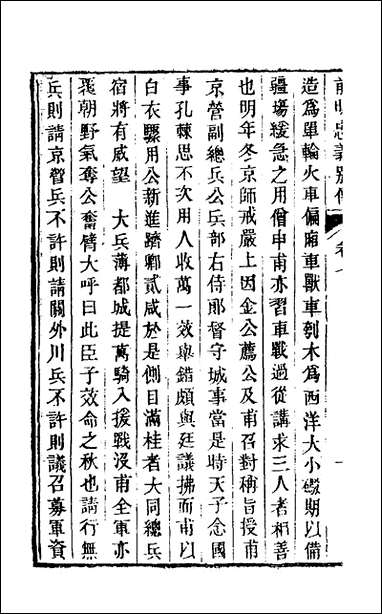 前明忠義別傳 卷
造爲單輪火車偏廂車獸車刳木爲西洋大小礮期以備
疆塲緩急之用僧申甫亦習車戰過從講求三人者相善
也明年冬京師戒嚴上因金公薦公及甫召對稱旨授甫
京營副總兵公兵部右侍郎督守城事當是時天子念國
事孔棘思不次用人收萬一效舉錯頗與廷議拂而甫以
白衣驟用公新進躋卿貳咸於是側目滿桂者大同總兵
宿將有威望 大兵薄都城提萬騎入援戰沒甫全軍亦
覆朝野氣奪公奮臂大呼曰此臣子效命之秋也請行無
兵則請京營兵不許則請關外川兵不許則議召募軍資